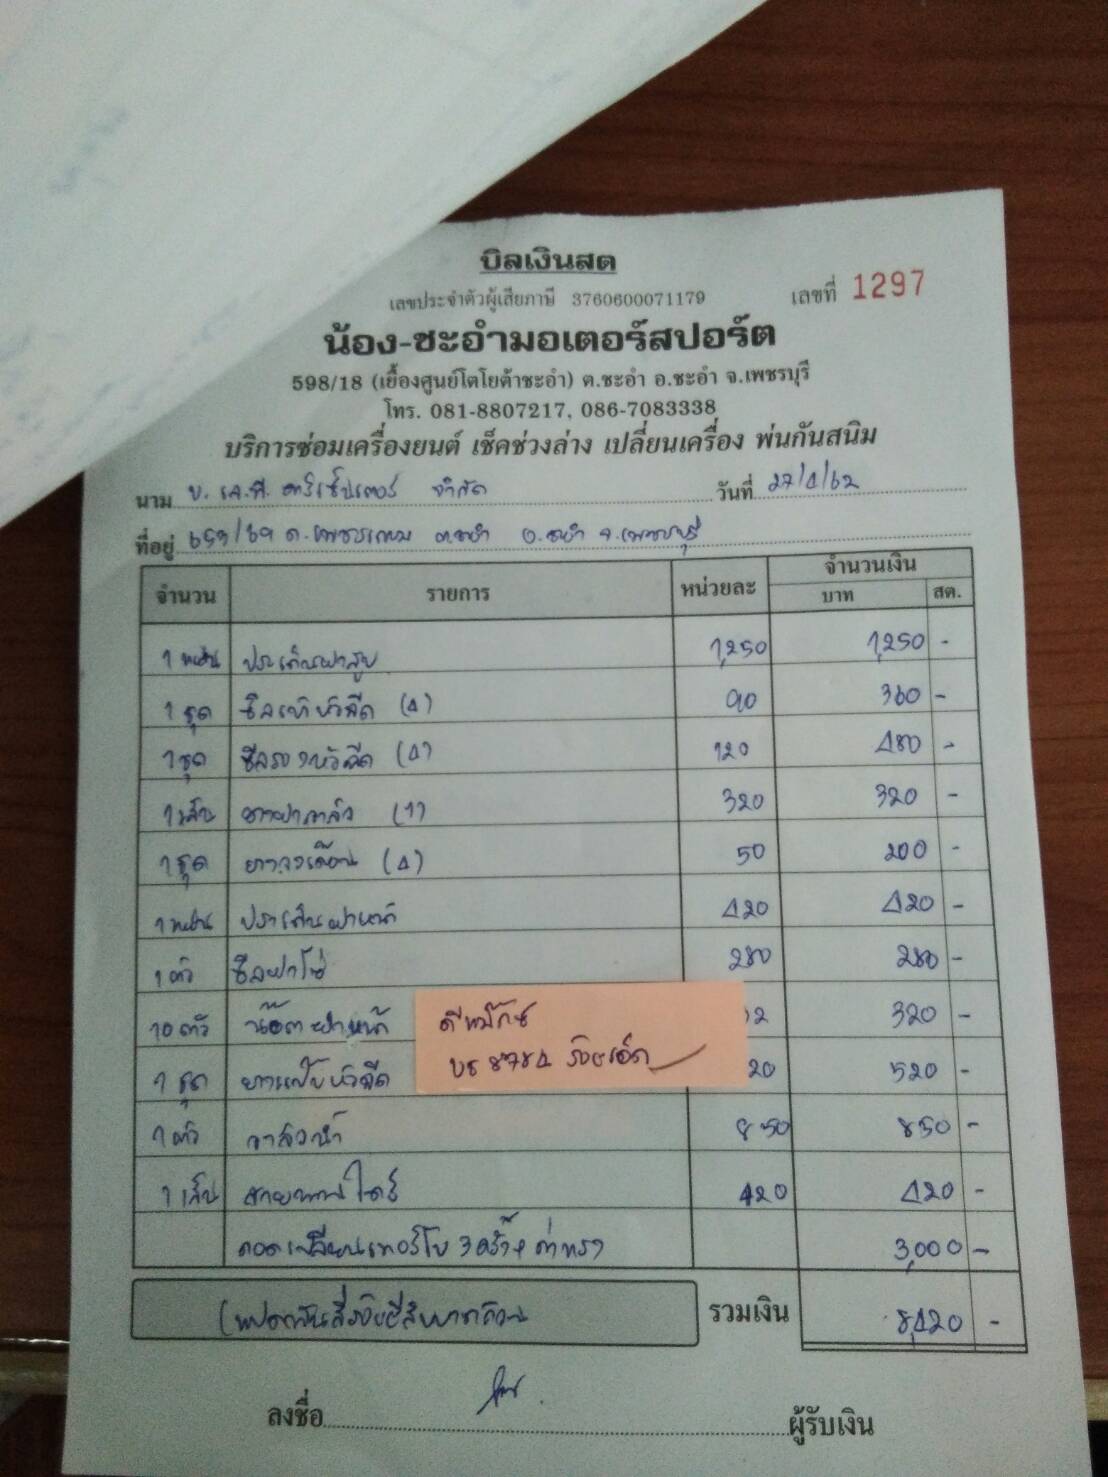 บิลเงินสด
เลขประจำตัวผู้เสียภาษี 3760600071179 เลขที่ 1297
น้อง-ชะอำมอเตอร์สปอร์ต
598/18 (เยื้องศูนย์โตโยต้าชะอำ) ต.ชะอำ อ.ชะอำ จ.เพชรบุรี
โทร. 081-8807217, 086-7083338
บริการซ่อมเครื่องยนต์ เช็คช่วงล่าง เปลี่ยนเครื่อง พ่นกันสนิม
นาม บ. เค.ที. จำกัด วันที่ 27/4/62
ที่อยู่ ถ.เพชรเกษม ต.ชะอำ อ.ชะอำ จ.เพชรบุรี
จำนวน รายการ หน่วยละ จำนวนเงิน
บาท สต.
1 แผ่น ประเก็นฝาสูบ 1,250 1,250 -
1 ชุด ซีลเบ้าหัวฉีด (4) 90 360 -
1 ชุด ซีลรองหัวฉีด (4) 120 480 -
1 เส้น ยางฝาวาล์ว (1) 320 320 -
1 ชุด ยางวงเดือน (4) 50 200 -
1 แผ่น ประเก็นฝาหน้า 420 420 -
1 ตัว ซีลฝาโซ่ 280 280 -
10 ตัว น๊อตฝาหน้า 32 320 -
ดีแม๊กซ์
บธ 8784
1 ชุด หัวฉีด 20 520 -
1 ตัว วาล์วน้ำ 850 850 -
1 เส้น สายพานไดร์ 420 420 -
ถอดเปลี่ยนเทอร์โบ 3 ครั้ง ค่าแรง 3,000 -
(แปดพันสี่ร้อยยี่สิบบาทถ้วน รวมเงิน 8,420 -
ลงชื่อ ผู้รับเงิน